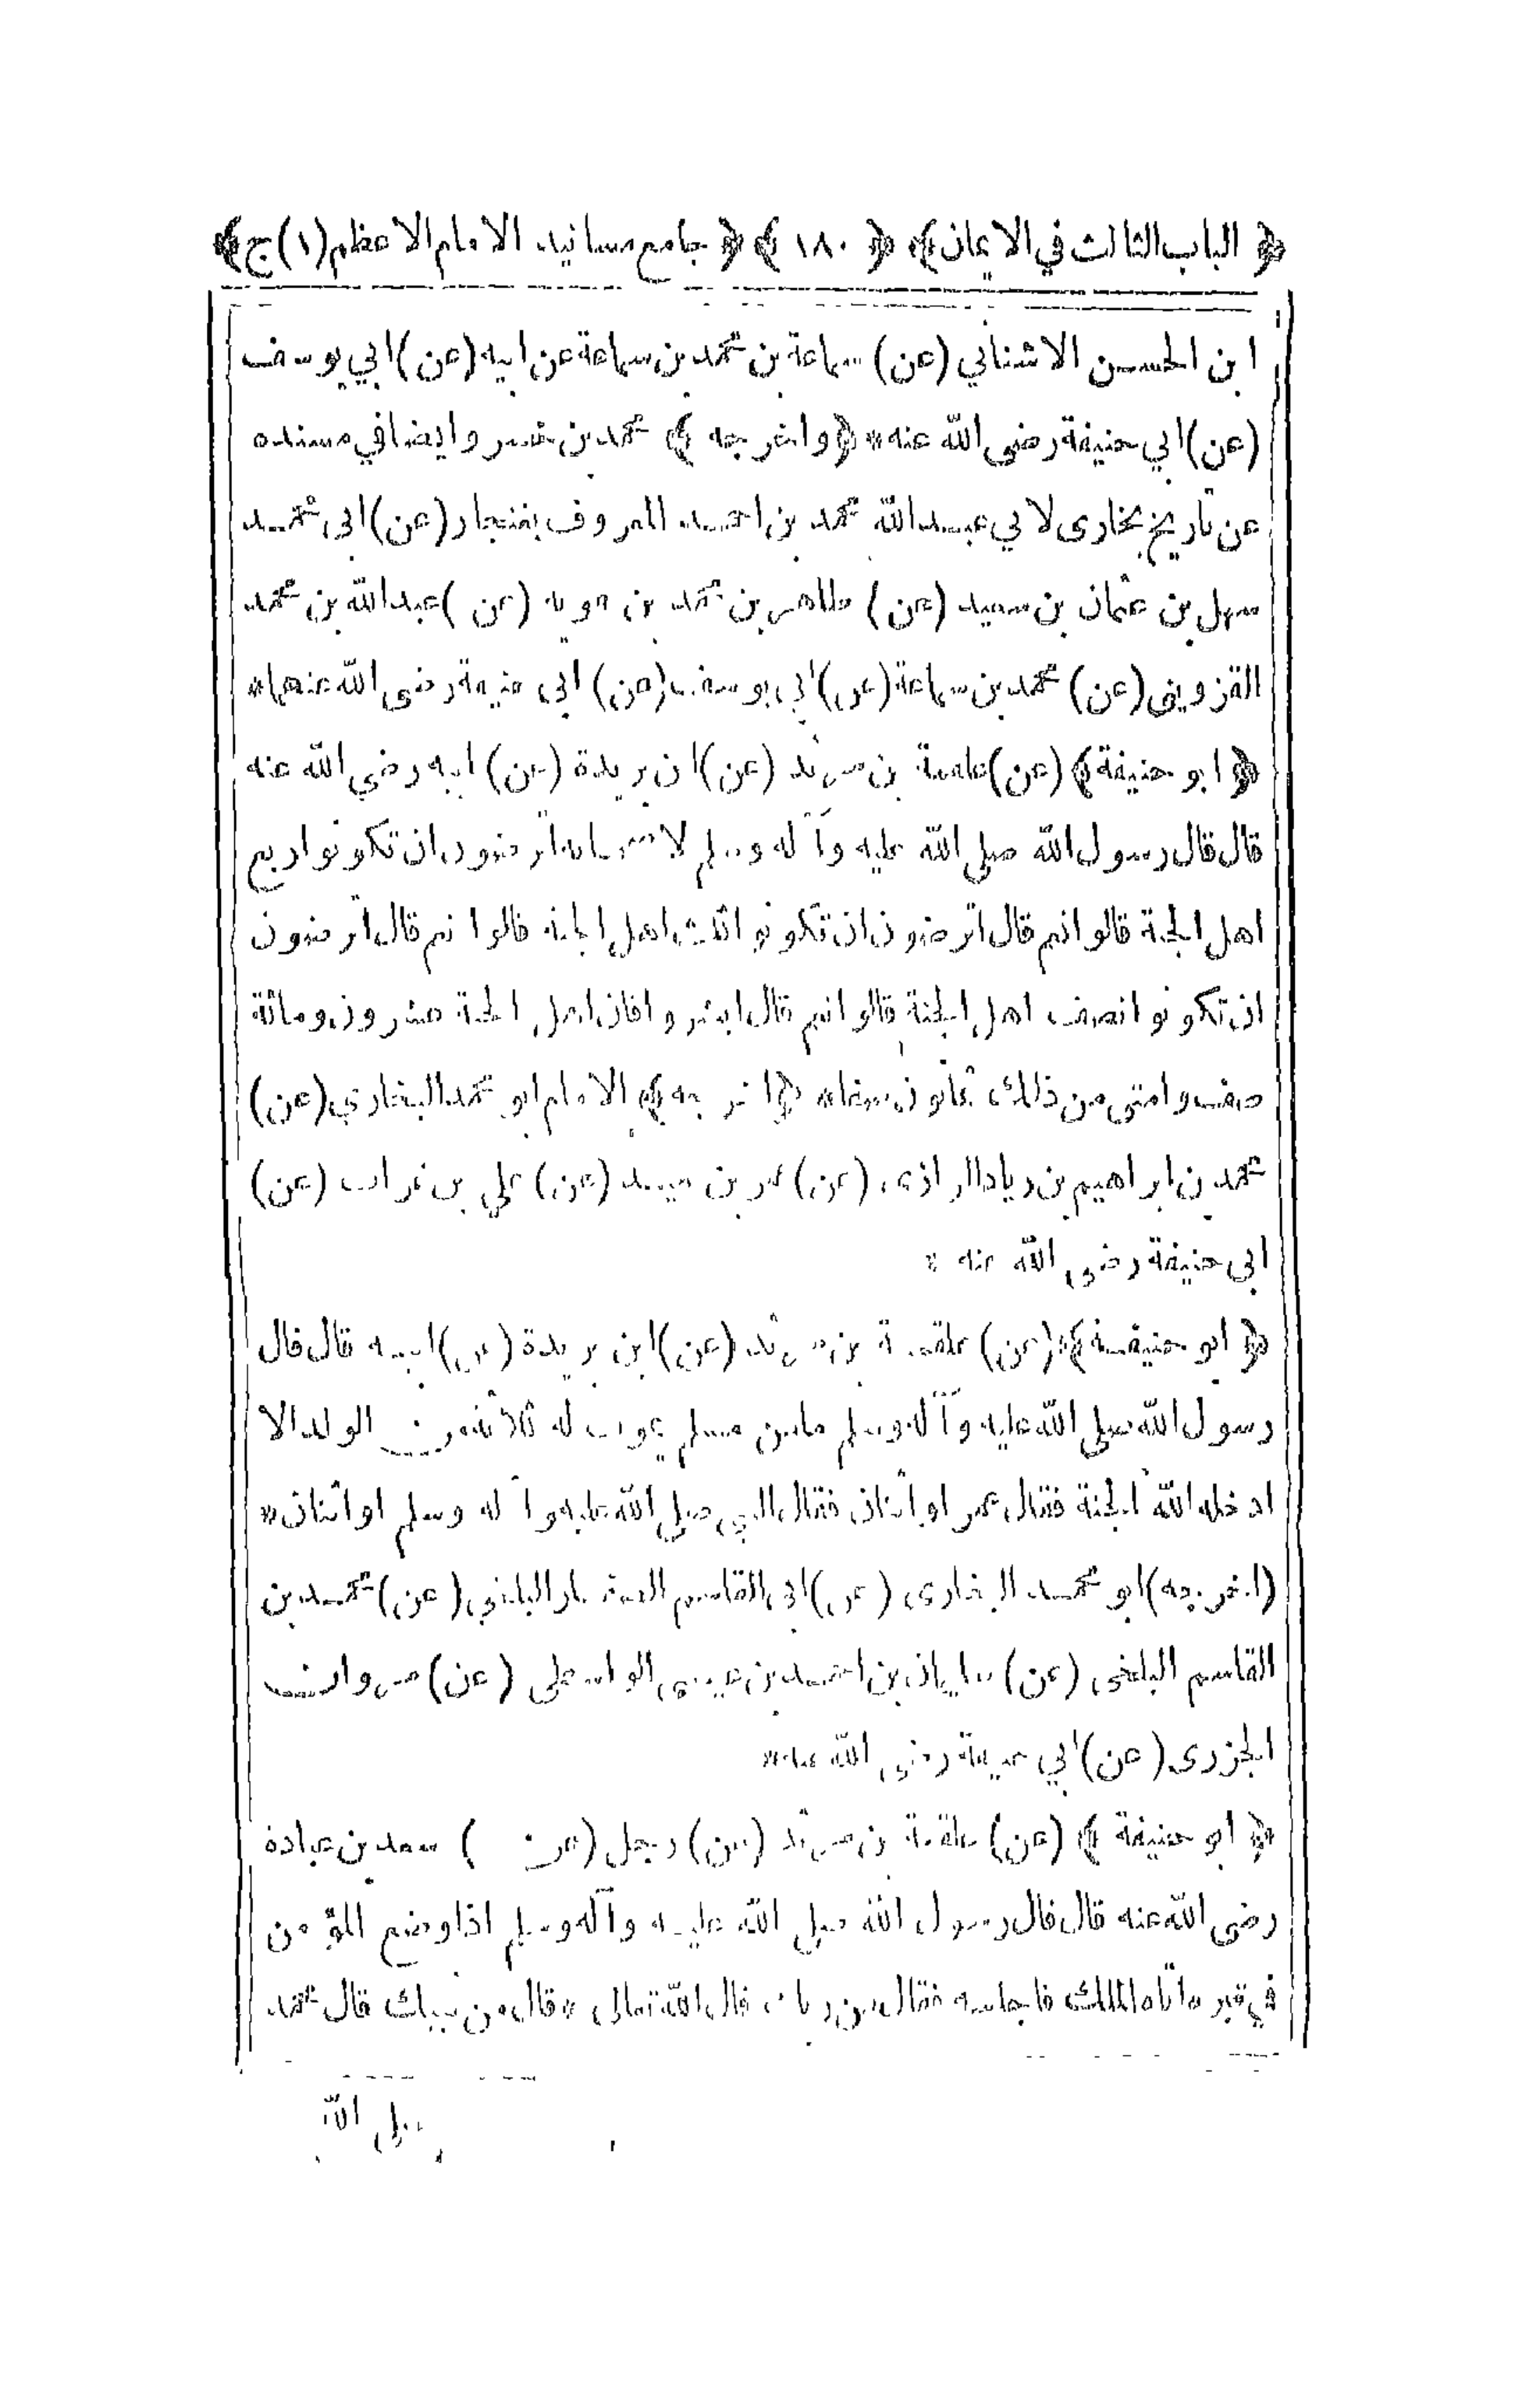 ﴿ الباب الثالث في الايمان ﴾ ﴿ ١٨٠ ﴾ ﴿ جامع مسانيد الامام الاعظم (١) ج ﴾
ابن الحسن الاشناني (عن) سماعة بن محمد بن سماعة عن ابيه (عن) ابي يوسف
(عن) ابي حنيفة رضى الله عنه * ﴿ واخرجه ﴾ محمد بن خسرو ايضا في مسنده
عن تاريخ بخارى لابي عبد الله محمد بن احمد المعروف بغنجار (عن) ابى محمد
سهل بن عثمان بن سعيد (عن) طاهر بن محمد بن حمويه (عن) عبد الله بن محمد
القزويني (عن) محمد بن سماعة (عن) ابي يوسف (عن) ابى حنيفة رضى الله عنهما *
﴿ ابو حنيفة ﴾ (عن) علقمة بن مرثد (عن) ابن بريدة (عن) ابيه رضي الله عنه
قال قال رسول الله صلى الله عليه وآله وسلم لاصحابه اترضون ان تكونوا ربع
اهل الجنة قالوا نعم قال اترضون ان تكونوا ثلث اهل الجنة قالوا نعم قال اترضون
ان تكونوا نصف اهل الجنة قالوا نعم قال ابشروا فان اهل الجنة عشرون ومائة
صف وامتى من ذلك ثمانون صفا * ﴿ اخرجه ﴾ الامام ابو محمد البخاري (عن)
محمد بن ابراهيم بن زياد الرازى (عن) عمر بن (عن) علي بن غراب (عن)
ابى حنيفة رضى الله عنه *
﴿ ابو حنيفة ﴾ (عن) علقمة بن مرثد (عن) ابن بريدة (عن) ابيه قال قال
رسول الله صلى الله عليه وآله وسلم ما من مسلم يموت له ثلاثة من الولد الا
ادخله الله الجنة فقال عمر او اثنان فقال النبي صلى الله عليه وآله وسلم او اثنان *
(اخرجه) ابو محمد البخارى (عن) ابى القاسم الصفار البلخى (عن) محمد بن
القاسم البلخى (عن) سليمان بن احمد بن عيسى الواسطى (عن) مروان
الجزرى (عن) ابي حنيفة رضى الله عنه *
﴿ ابو حنيفة ﴾ (عن) علقمة بن مرثد (عن) رجل (عن) سعد بن عبادة
رضى الله عنه قال قال رسول الله صلى الله عليه وآله وسلم اذا وضع المؤمن
في قبره اتاه الملك فاجلسه فقال من ربك قال الله تعالى * قال من نبيك قال محمد
صلى الله